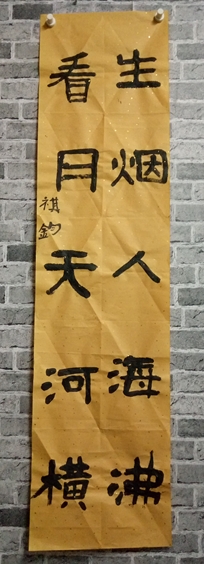 生烟人海沸
看月天河横
祺钧